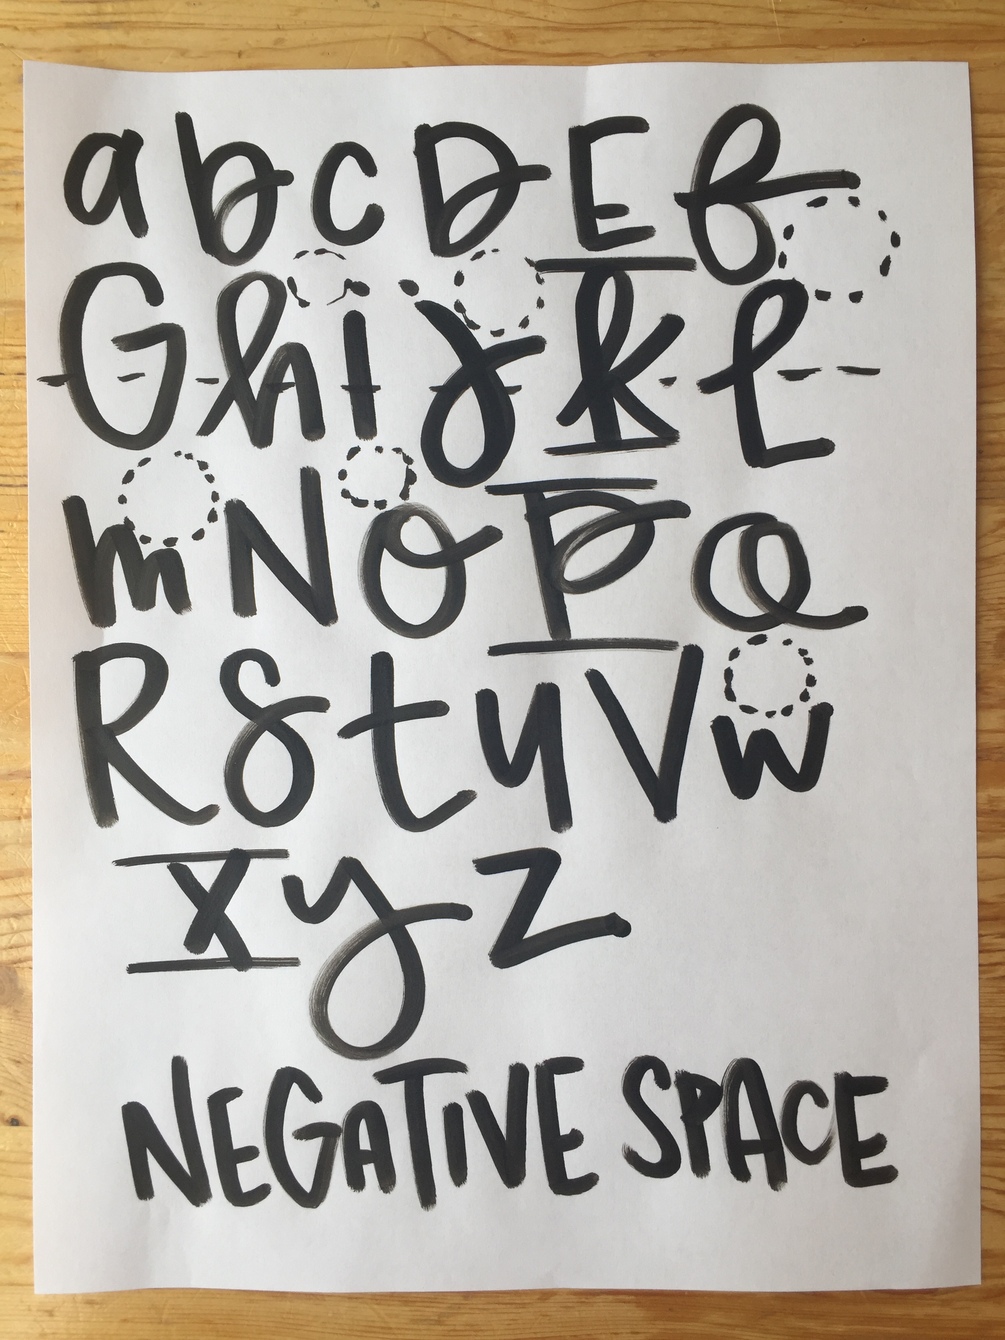 a b c D E f
G h i j k l
m N O P Q
R S t u V w
X y z
NEGATiVE SPACE